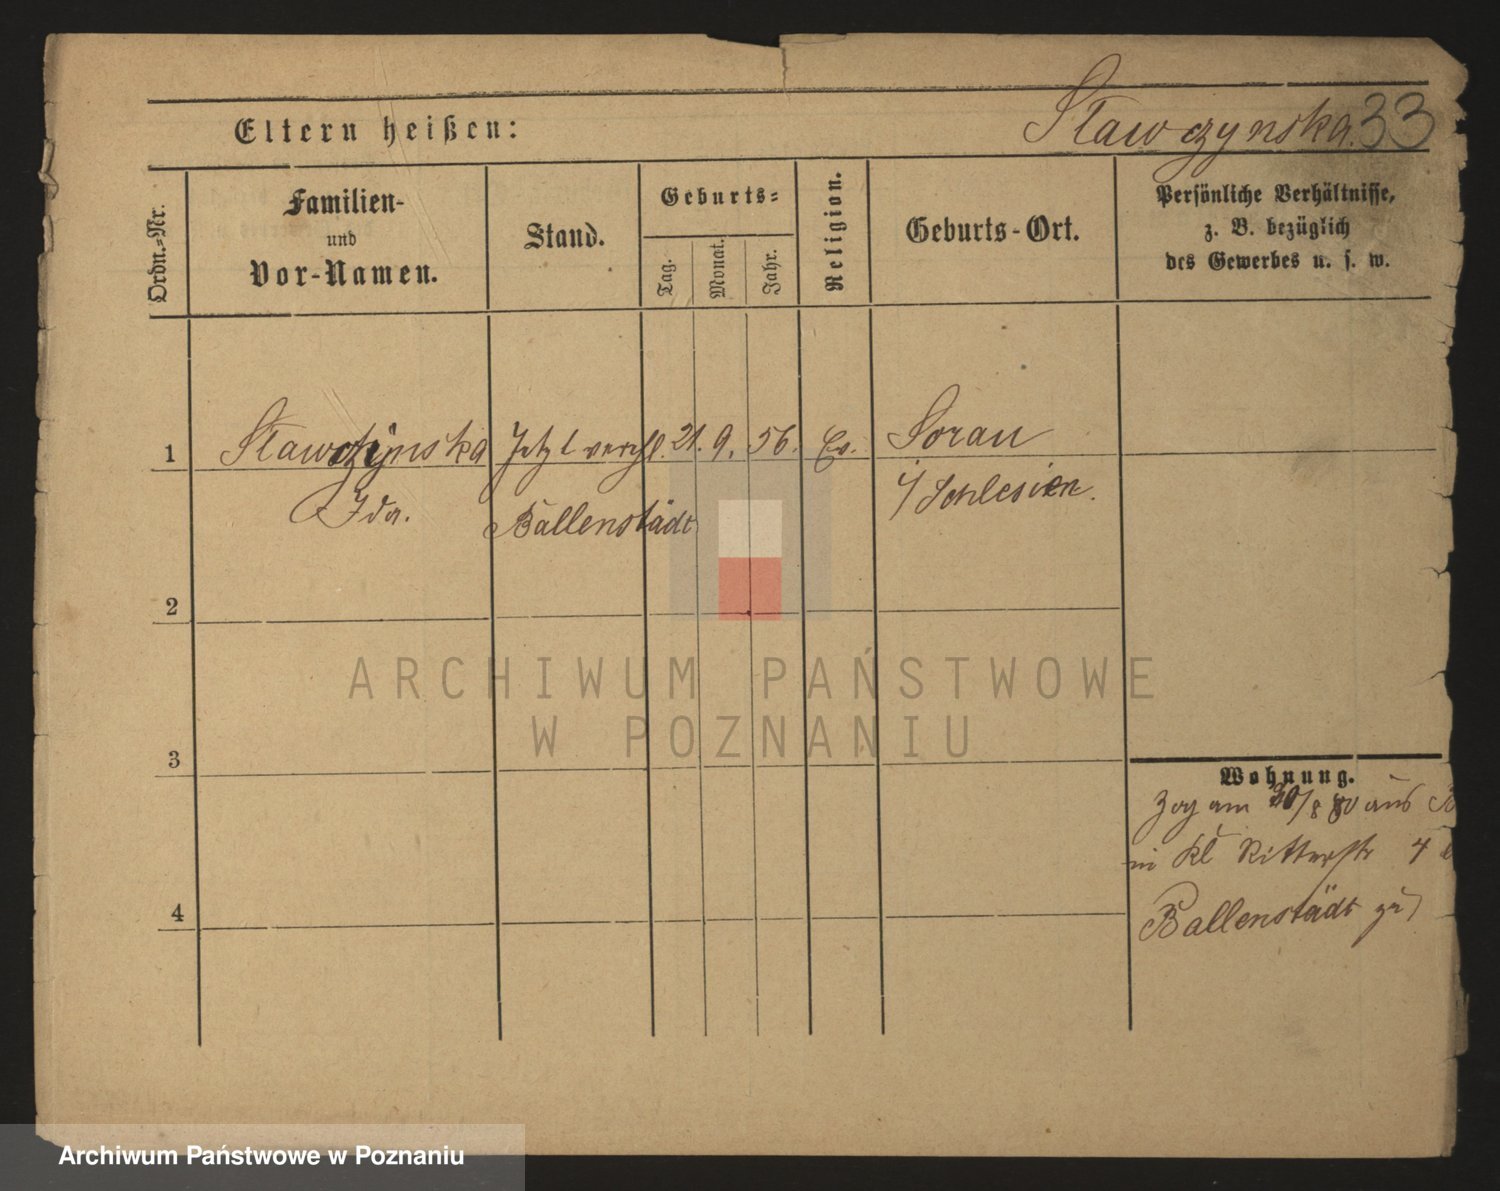 Stawczynska. 33
Eltern heißen:
Ordn.-Nr.
Familien-
und
Vor-Namen.
Stand.
Geburts-
Tag.
Monat.
Jahr.
Religion.
Geburts-Ort.
Persönliche Verhältnisse,
z. B. bezüglich
des Gewerbes u. s. w.
1 Stawczynska Jetzt verehl. 21. 9. 56. Ev. Sorau
Ida. Ballenstädt i/Schlesien.
2
3
4
Wohnung.
Zog am 30/8 80 aus
in Kl Ritterstr 4
Ballenstädt zu
ARCHIWUM PAŃSTWOWE
W POZNANIU
Archiwum Państwowe w Poznaniu